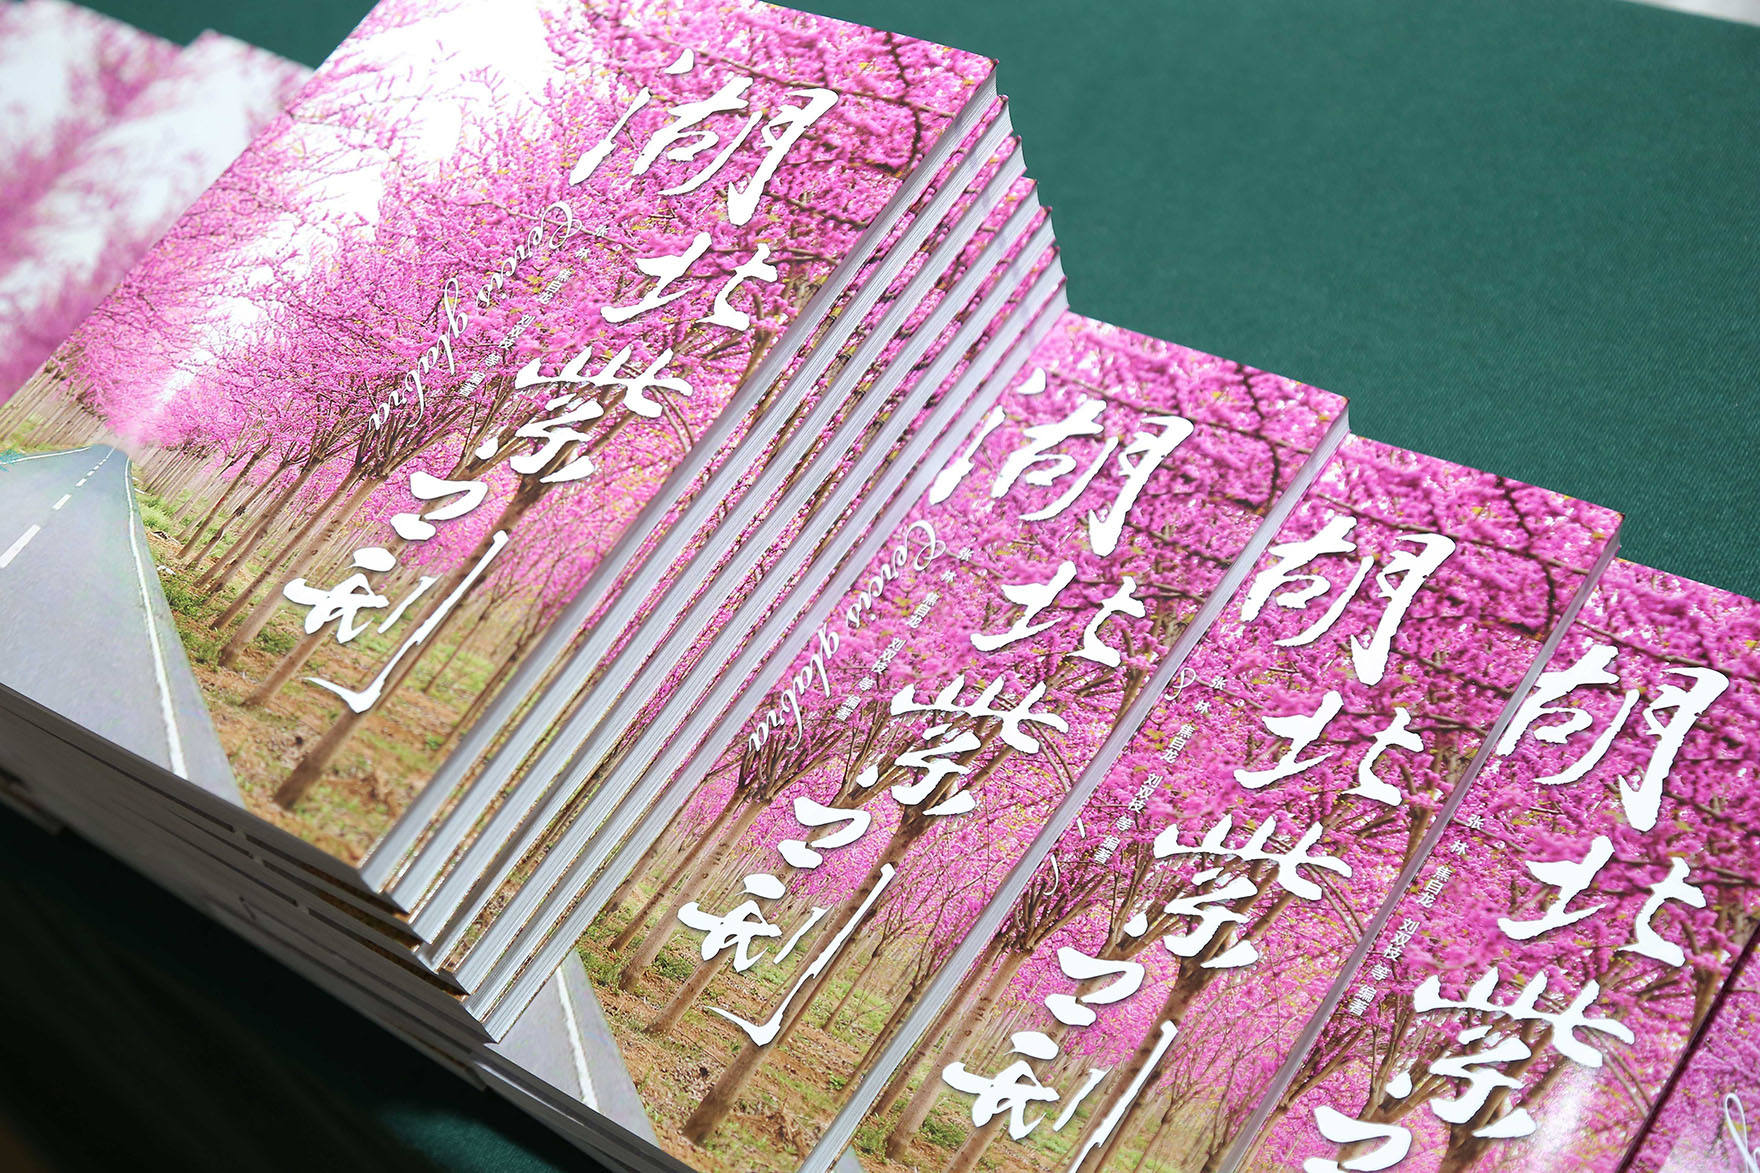 湖北紫荆
Cercis glabra
张 林 焦自龙 刘双枝 等 编著
湖北紫荆
Cercis glabra
张 林 焦自龙 刘双枝 等 编著
湖北紫荆
张 林 焦自龙 刘双枝 等 编著
湖北紫
张 林 焦自龙 刘双枝 等 编著